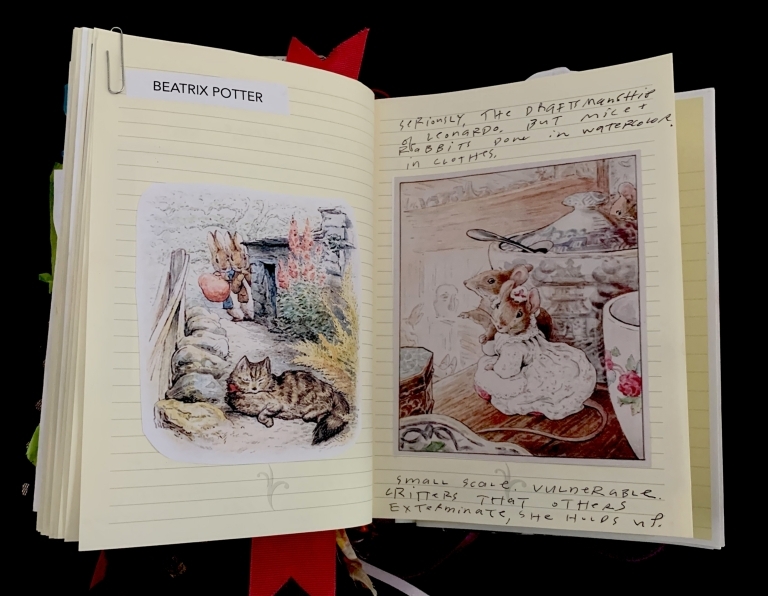 BEATRIX POTTER
SERIOUSLY, THE DRAFTSMANSHIP
OF LEONARDO. BUT MICE +
RABBITS DONE IN WATERCOLOR.
IN CLOTHES.
SMALL SCALE. VULNERABLE.
CRITTERS THAT OTHERS
EXTERMINATE, SHE HOLDS UP.